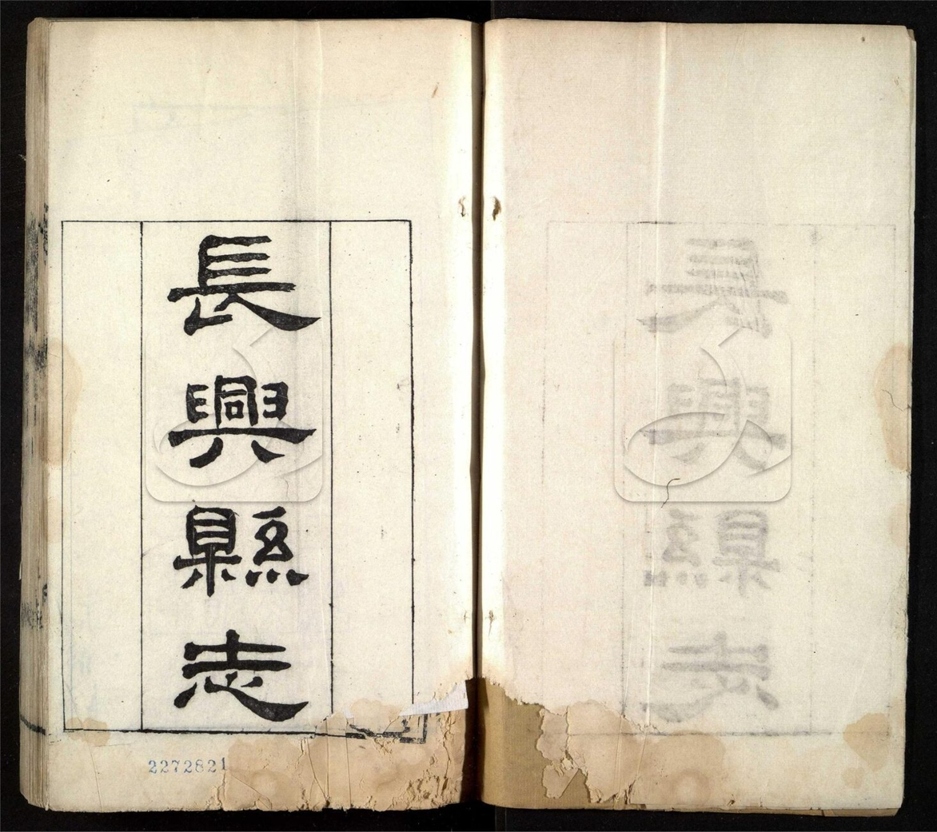 長興縣志
2272821